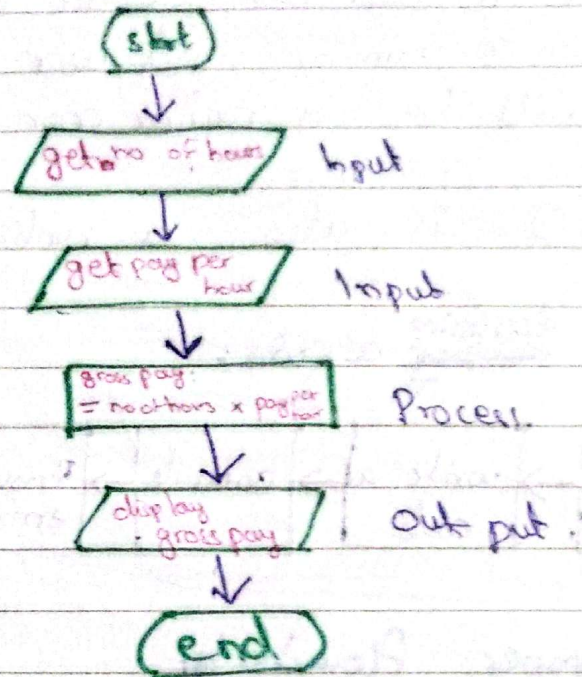 start
get no of hours Input
get pay per
hour Input
gross pay:
= no of hours x pay per
hour Process.
display
gross pay Out put.
end